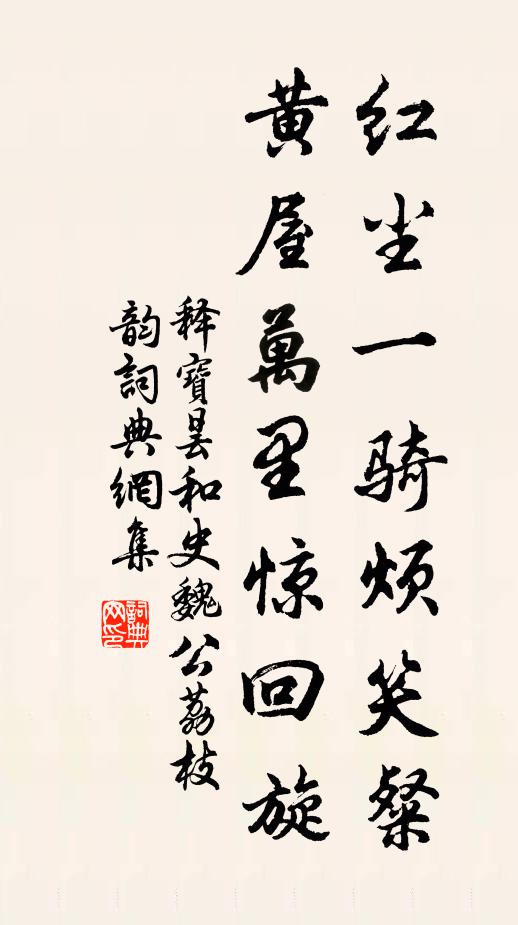 红尘一骑烦笑粲
黄屋萬里惊回旋
释寶昙和史魏公荔枝
韵詞典網集
詞典网印